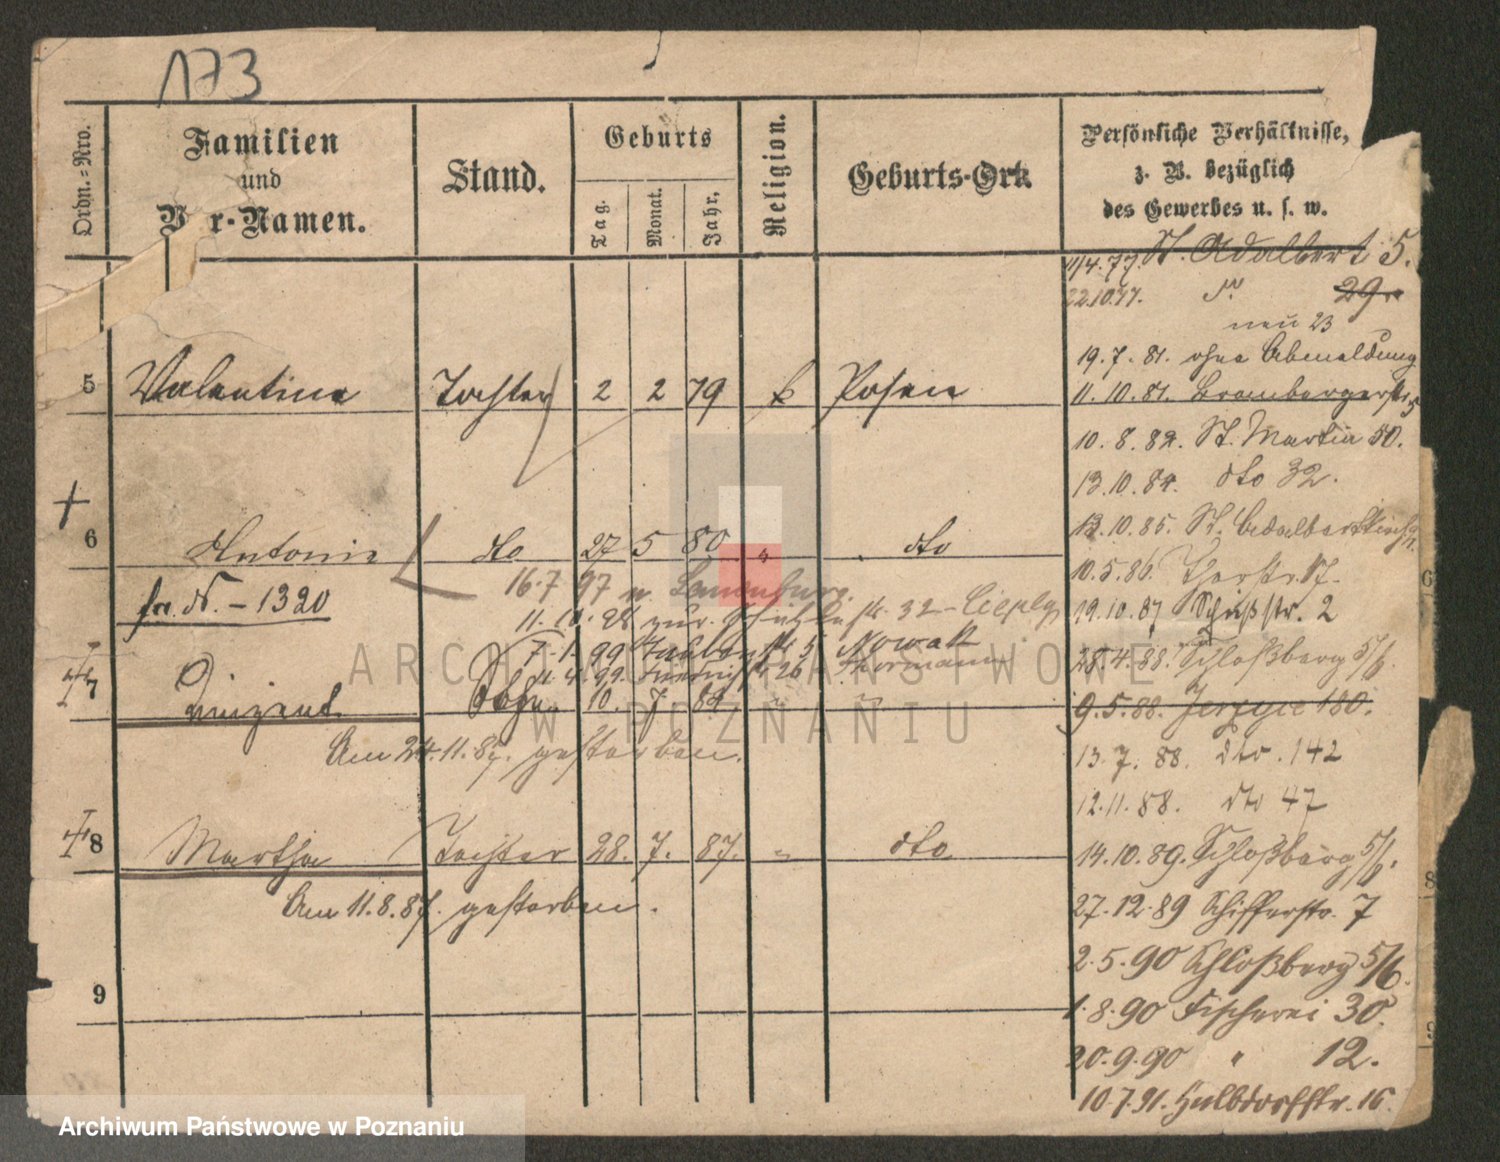 173
Ordn.-Nro.
Familien
und
Vor-Namen.
Stand.
Geburts
Tag.
Monat.
Jahr.
Religion.
Geburts-Ort.
Persönliche Verhältnisse,
z. B. bezüglich
des Gewerbes u. s. w.
11/4.77. St. Adalbert 5.
22.10.77. 29
neu 23
19.7.81. ohne Abmeldung
5 Valentine Tochter 2 2 79 k Posen
11.10.81. Brombergerstr. 5
10.8.82. St. Martin 50.
13.10.84. dto 32.
13.10.85. St. Adalbertkirchg.
6 Antonie dto 27 5 80 " dto
10.5.86. Thorstr. 17.
fr. N. – 1320
16.7 97 n. Lauenburg.
11.10.98 zur. str. 32 –
19.10.87 Schießstr. 2
7.1.99 Taubenstr 5 Nowak
11.4.99 26
28.4.88. Schloßberg 5/6.
7 Vinzent Sohn 10. 7 84 " "
9.5.88. Jerzyce 180.
Am 24.11.87. gestorben.
13.7.88. dto. 142
12.11.88. dto 47
8 Martha Tochter 28. 7. 87. " dto
14.10.89. Schloßberg 5/6.
Am 11.8.87. gestorben.
27.12.89 Schifferstr. 7
2.5.90 Schloßberg 5/6.
9
1.8.90 Fischerei 30.
20.9.90 " 12.
10.7.91. Halbdorfstr. 16.
ARCHIWUM PAŃSTWOWE
W POZNANIU
Archiwum Państwowe w Poznaniu